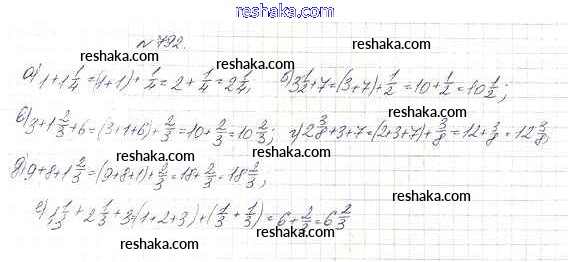 reshaka.com
№ 792.
reshaka.com
а) 1+1 1/4=(1+1)+1/4=2+1/4=2 1/4; б) 3 1/2+7=(3+7)+1/2=10+1/2=10 1/2;
reshaka.com reshaka.com
в) 3+1 2/3+6=(3+1+6)+2/3=10+2/3=10 2/3; г) 2 3/8+3+7=(2+3+7)+3/8=12+3/8=12 3/8;
reshaka.com reshaka.com
д) 9+8+1 2/3=(9+8+1)+2/3=18+2/3=18 2/3;
reshaka.com
е) 1 1/3+2 1/3+3=(1+2+3)+(1/3+1/3)=6+2/3=6 2/3
reshaka.com
reshaka.com